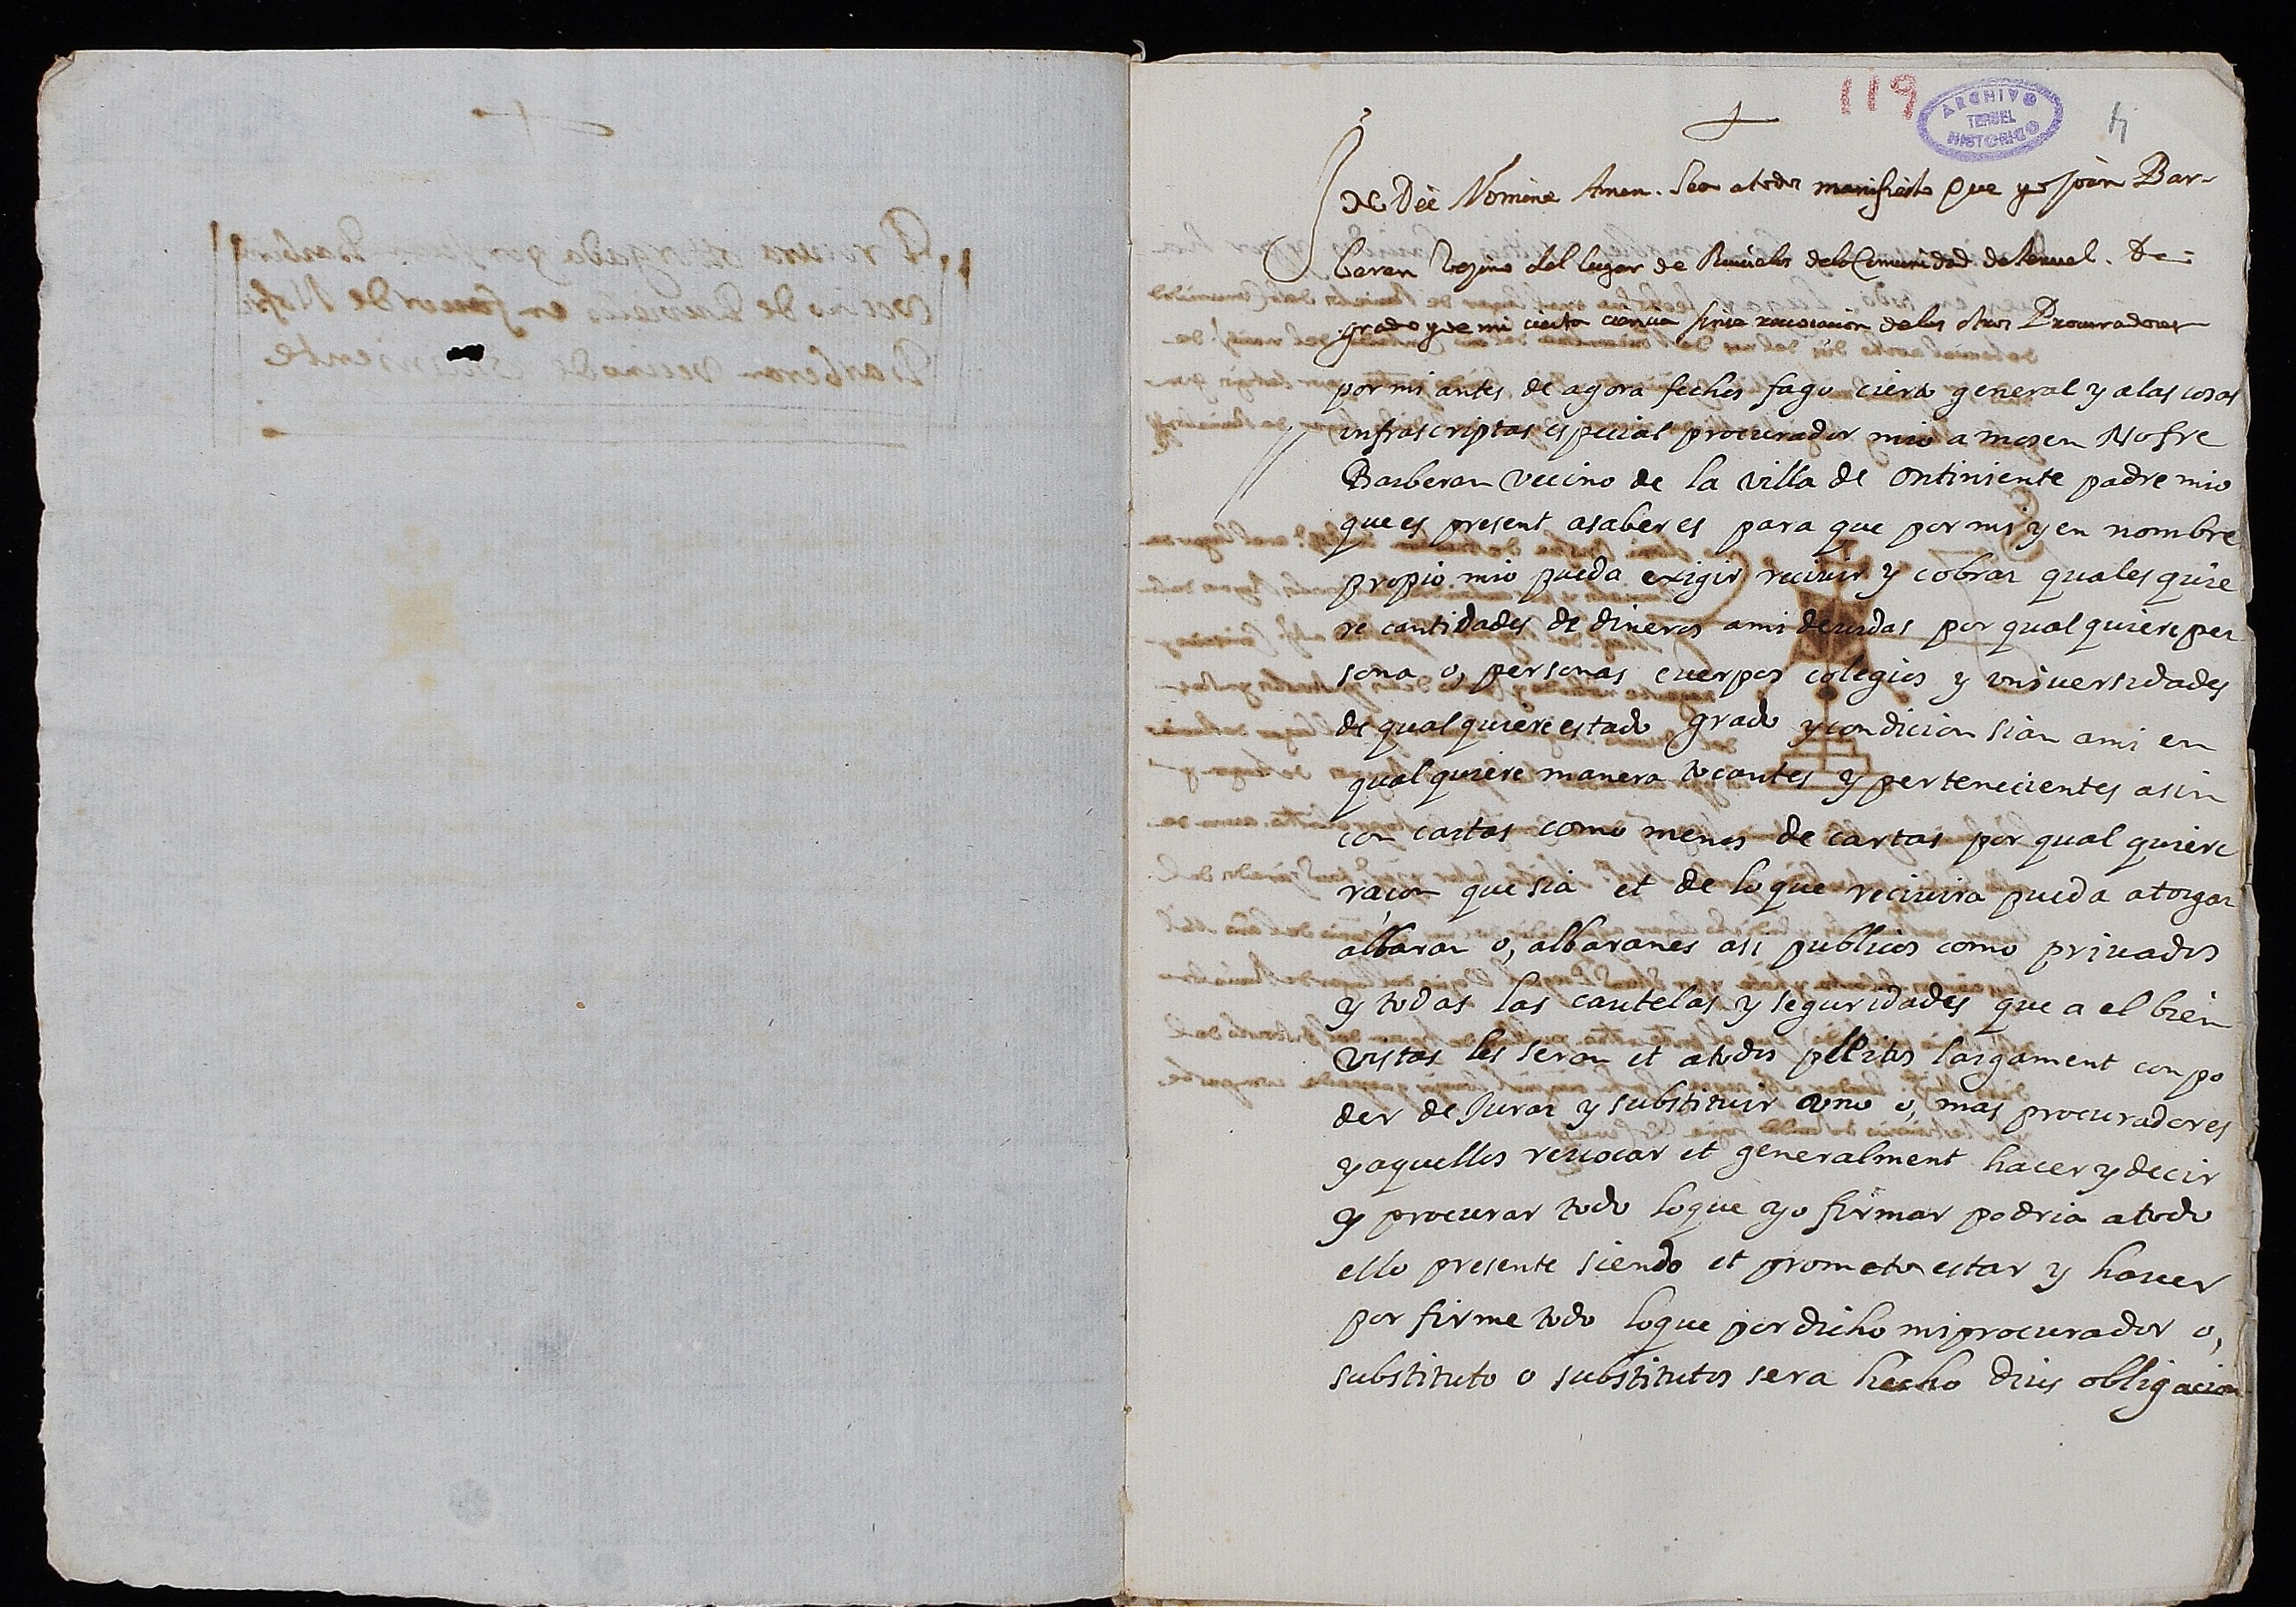 119
ARCHIVO
TERUEL
HISTORICO
4
In Dei Nomine Amen. Sea a todos manifiesto que yo Joan Bar-
beran vezino del lugar de Ruuielos de la Comunidad de Teruel. De
grado y de mi cierta ciencia sinse reuocacion de los otros Procuradores
por mi antes de agora fechos fago cierto general y a las cosas
infrascriptas especial procurador mio a mosen Nofre
Barberan vecino de la villa de ontiniente padre mio
que es present asaber es para que por mi y en nombre
propio mio pueda exigir reciuir y cobrar quales quie
re cantidades de dineros ami deuidas por qual quiere per
sona o, personas cuerpos colegios y vniuersidades
de qual quiere estado grado y condicion sian ami en
qual quiere manera tocantes y pertenecientes asin
con cartas como menos de cartas por qual quiere
raçon que sia et de lo que reciuira pueda atorgar
albaran o, albaranes asi publicos como priuados
y todas las cautelas y seguridades que a el bien
vistas les seran et a todos pleitos largament con po
der de Jurar y substituir vno o, mas procuradores
y aquellos reuocar et generalment hacer y decir
y procurar todo lo que yo firmar podria a todo
ello presente siendo et prometo estar y hauer
por firme todo lo que por dicho mi procurador o,
substituto o substitutos sera hecho dius obligacion